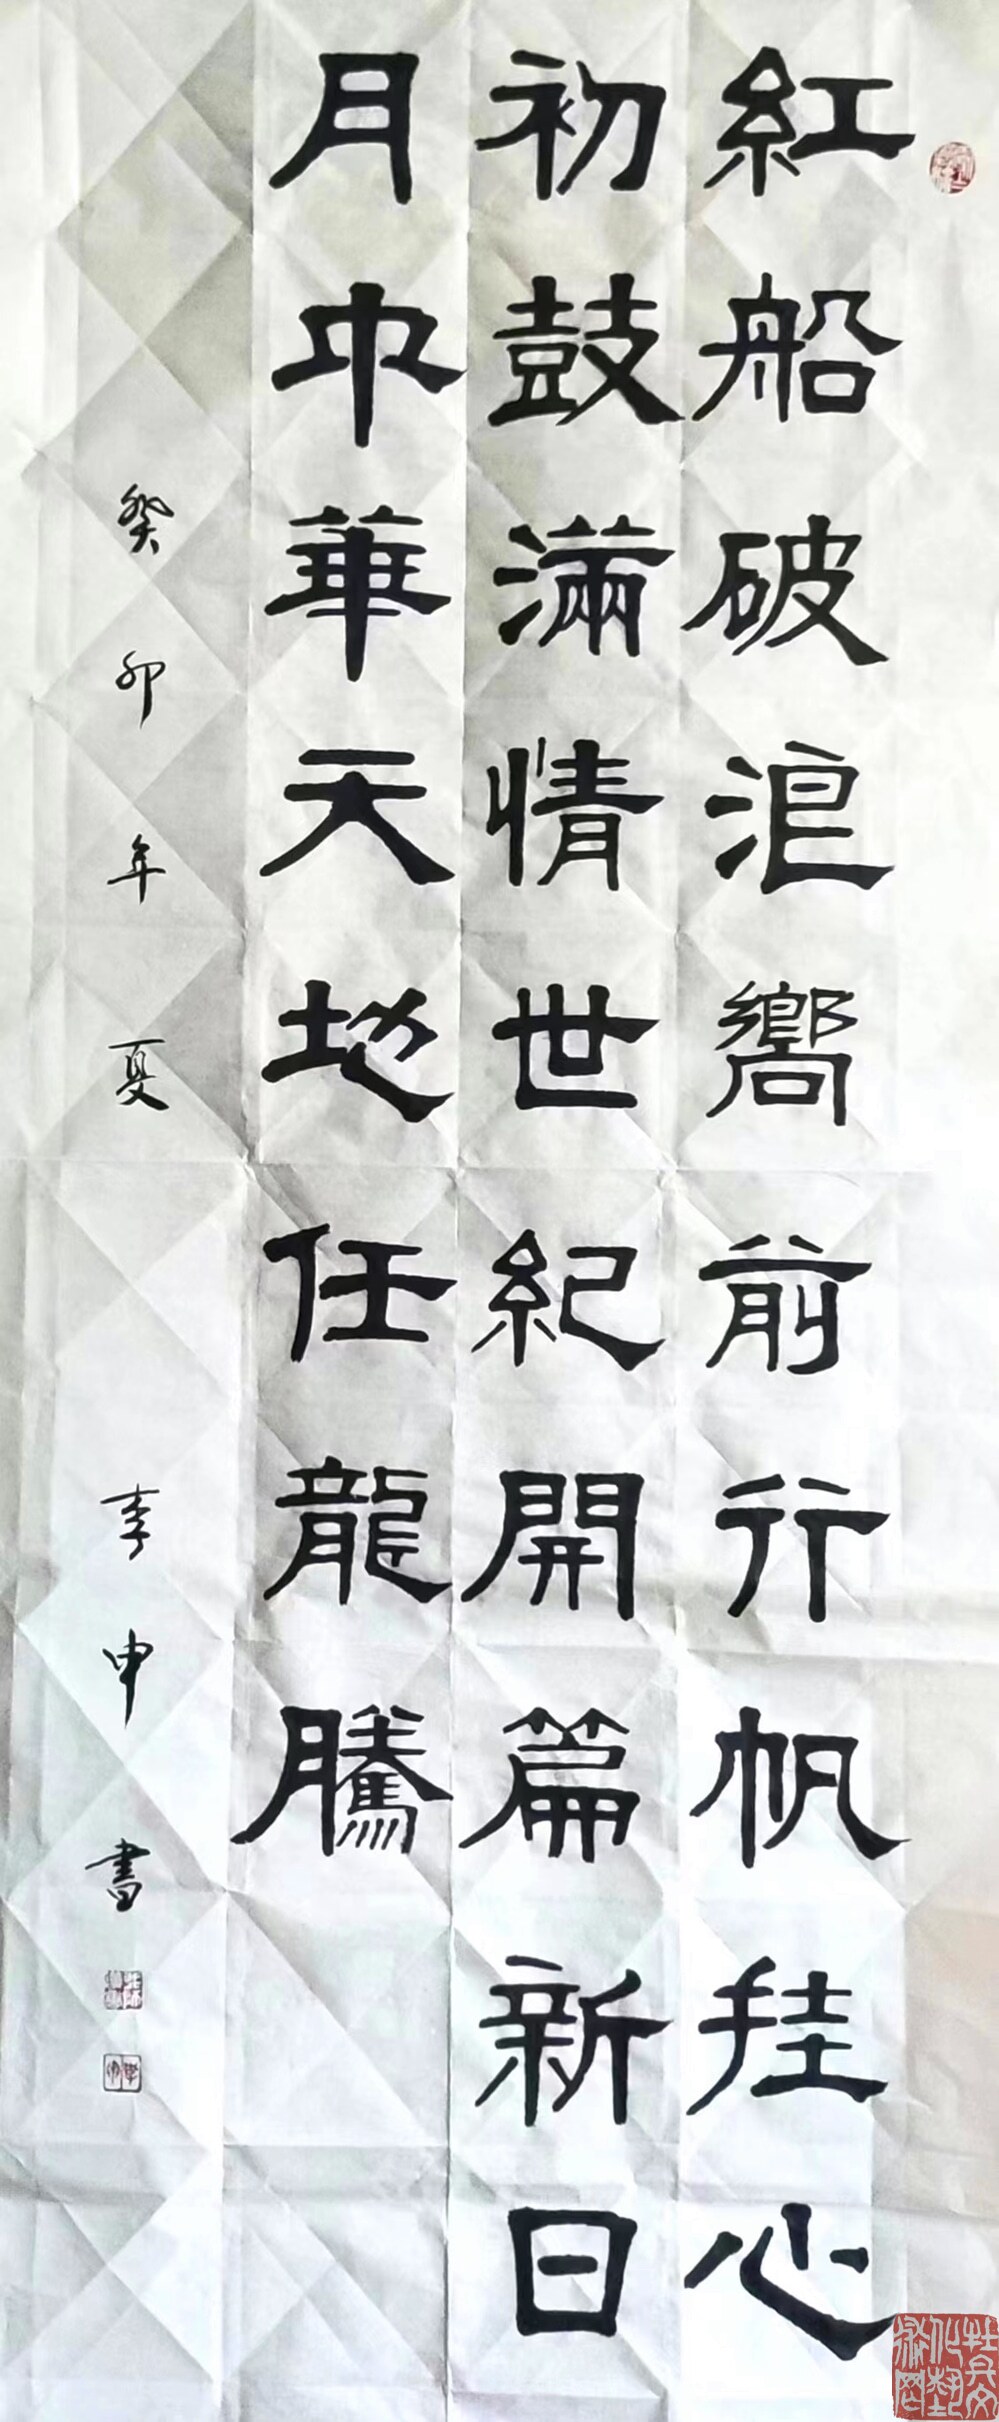 紅船破浪嚮前行帆挂心
初鼓滿情世紀開篇新日
月中華天地任龍騰
癸卯年夏 李申書